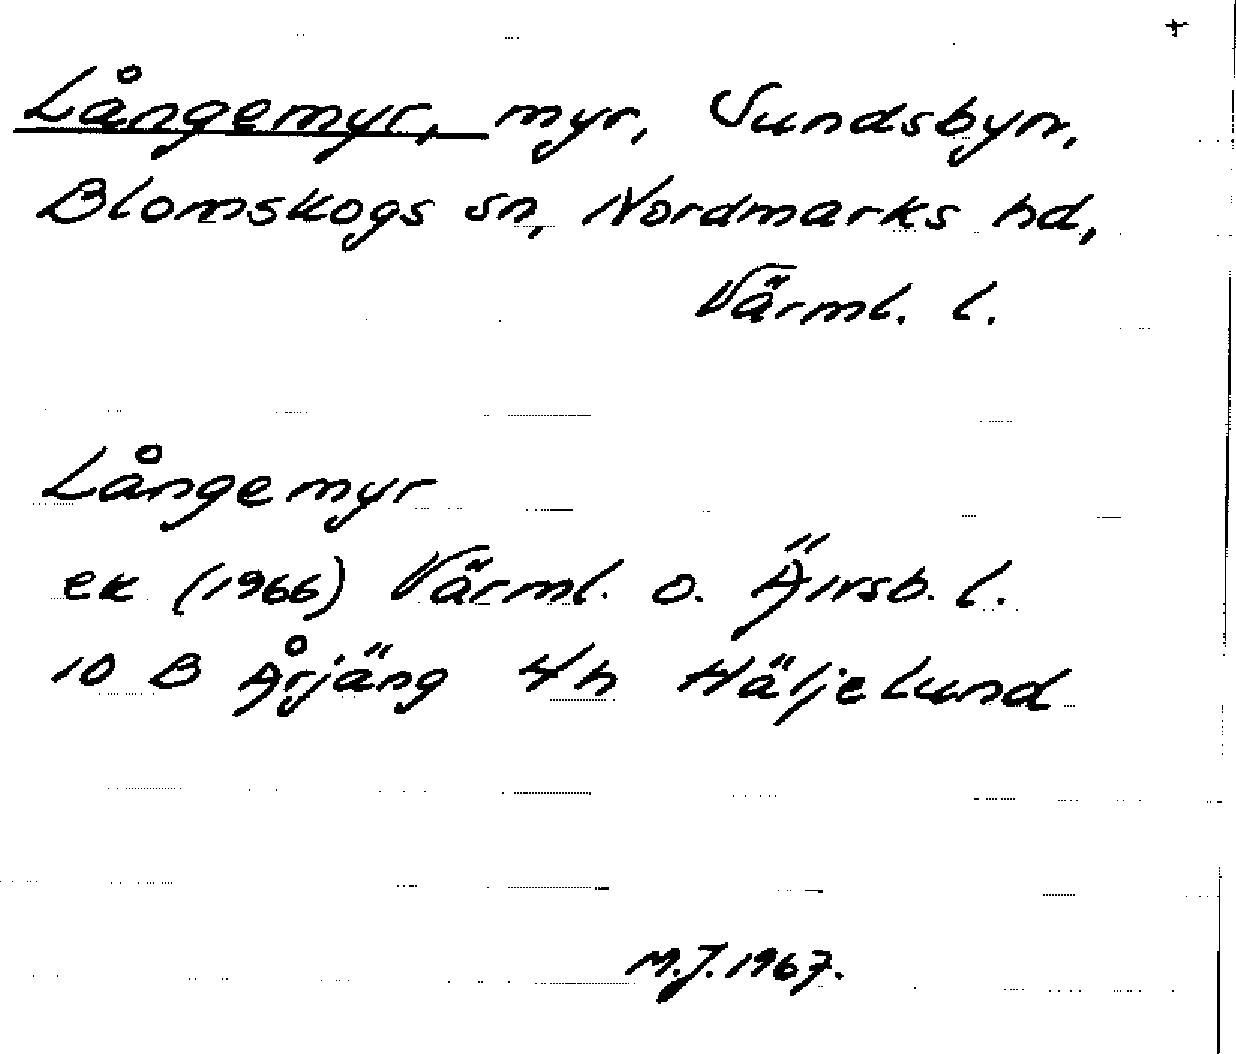 +
Långemyr, myr, Sundsbyn,
Blomskogs sn, Nordmarks hd,
Värml. l.
Långemyr
ek (1966) Värml. o. Älvsb. l.
10 B Årjäng 4h Häljelund
M.J. 1967.